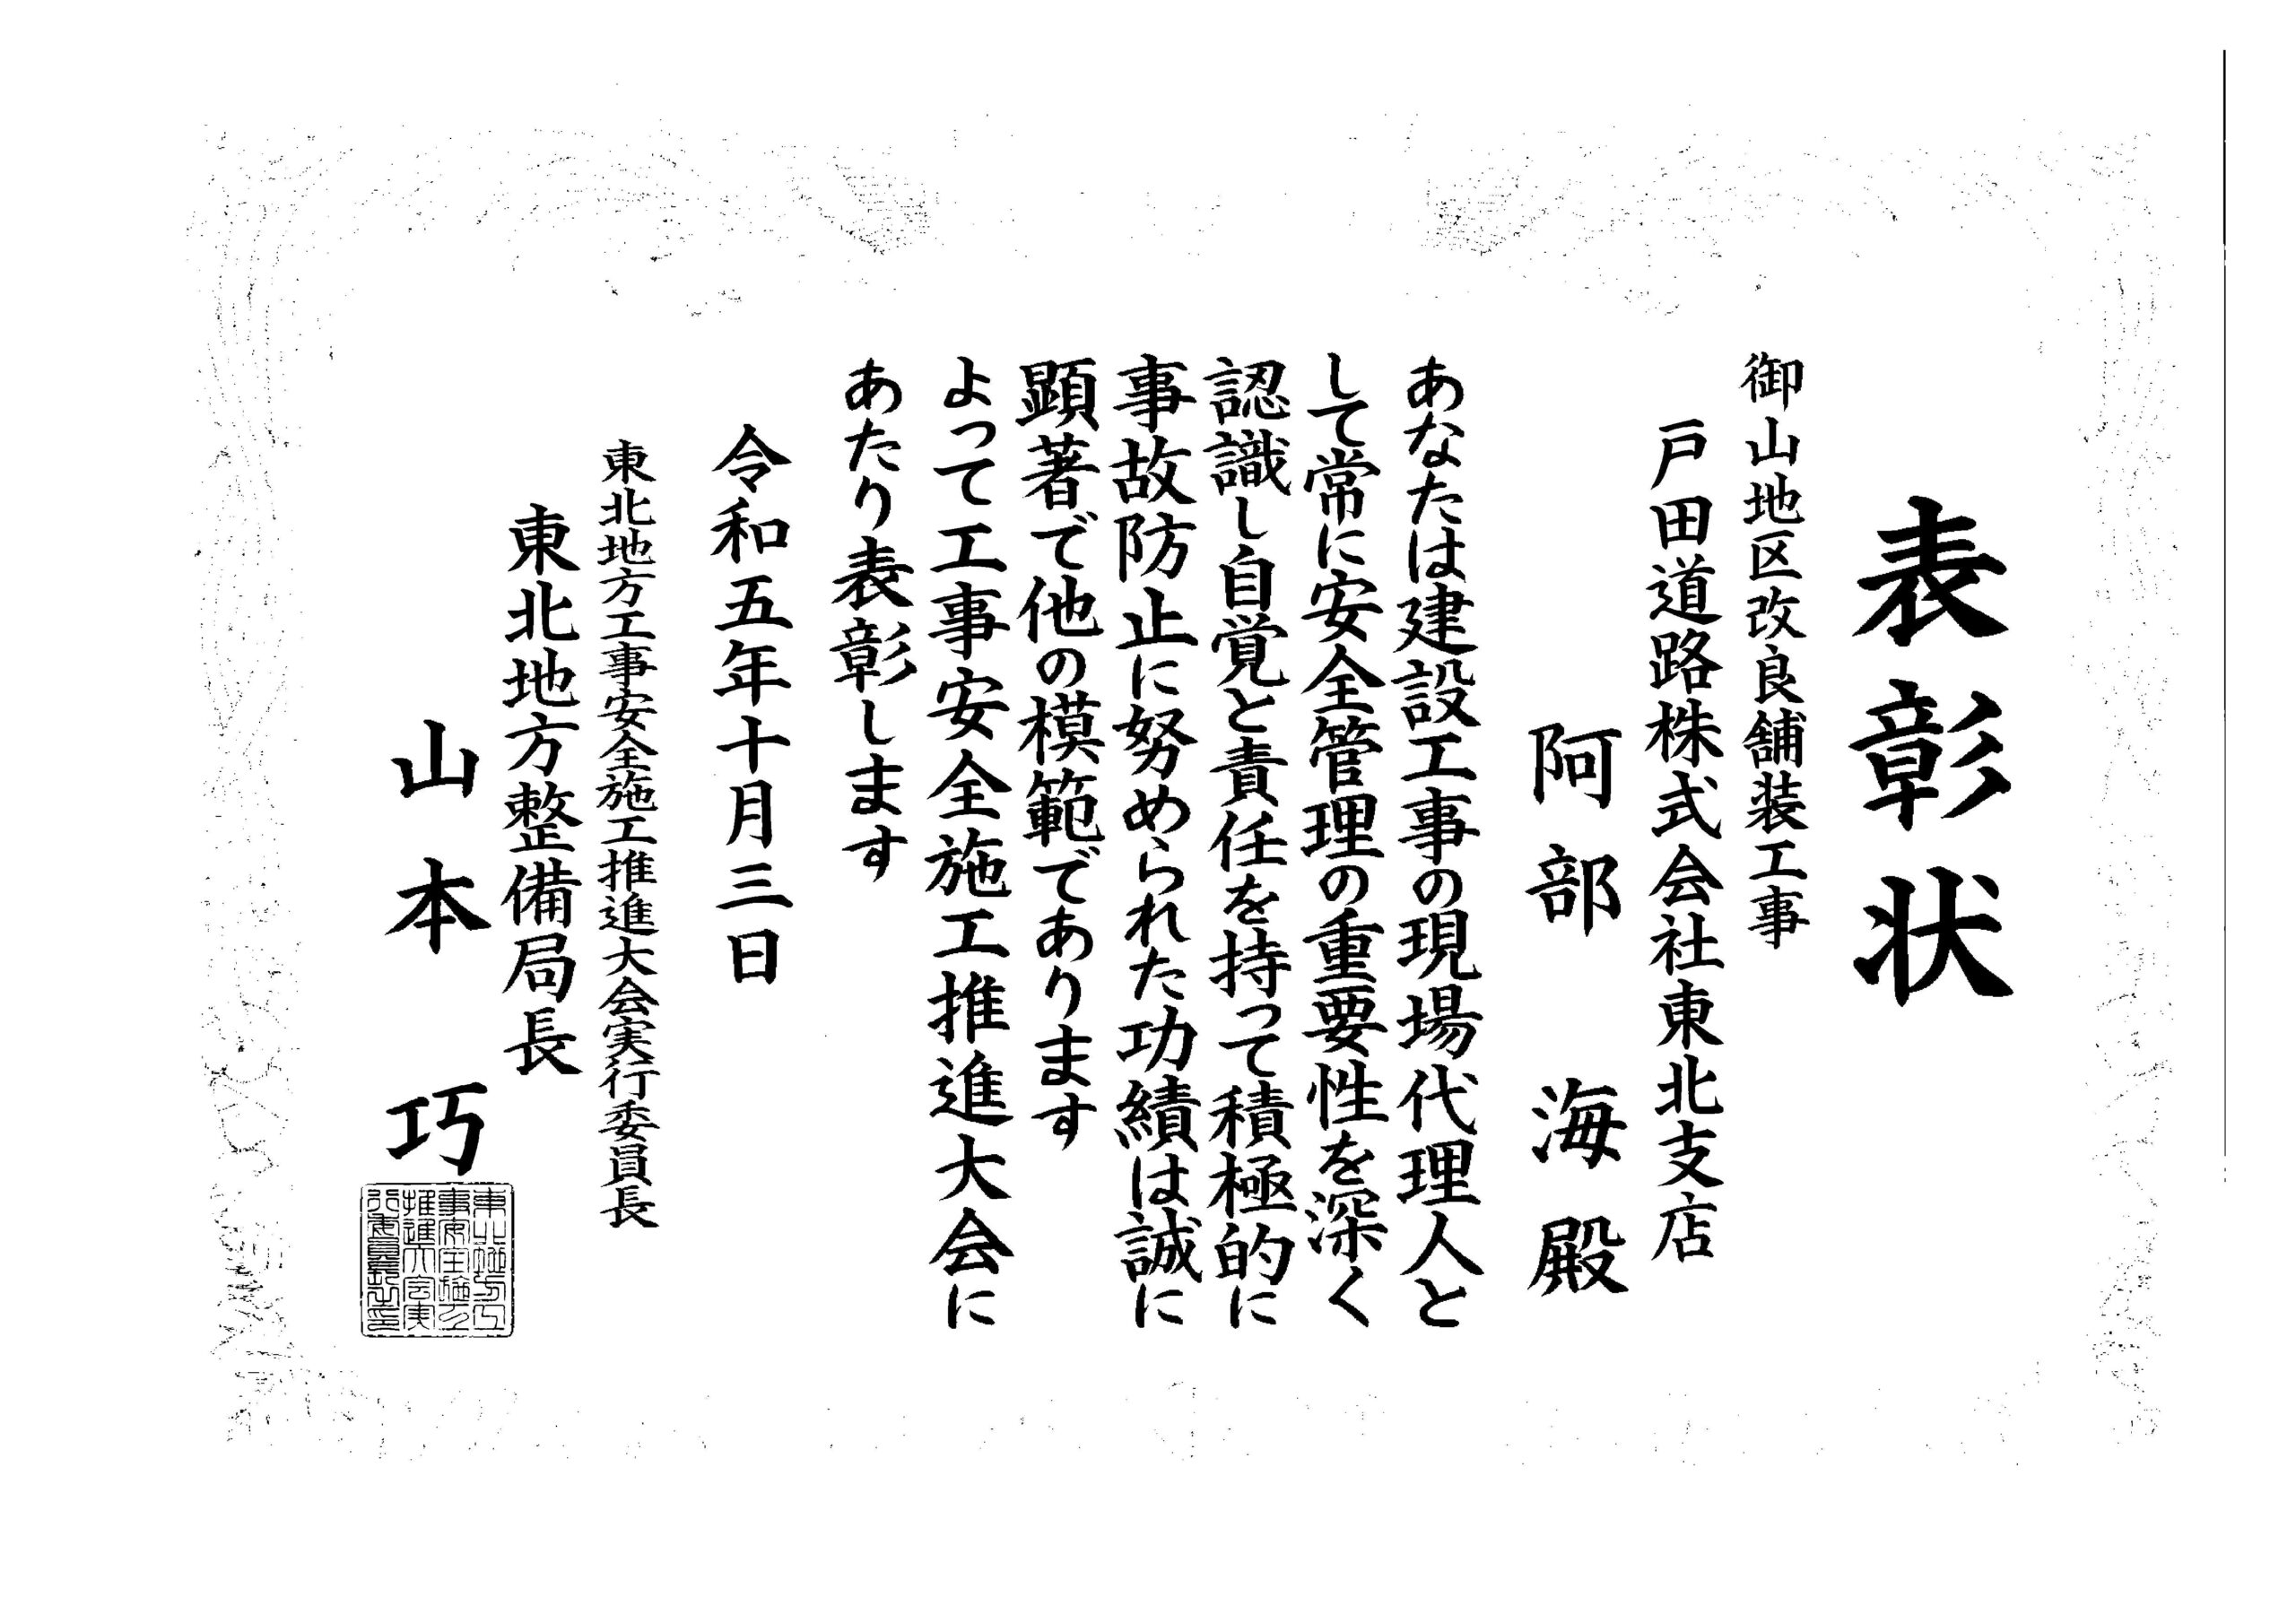 表彰状
御山地区改良舗装工事
戸田道路株式会社東北支店
阿部 海殿
あなたは建設工事の現場代理人と
して常に安全管理の重要性を深く
認識し自覚と責任を持って積極的に
事故防止に努められた功績は誠に
顕著で他の模範であります
よって工事安全施工推進大会に
あたり表彰します
令和五年十月三日
東北地方工事安全施工推進大会実行委員長
東北地方整備局長
山本 巧
東北地方工
事安全施工
推進大会実
行委員長之印